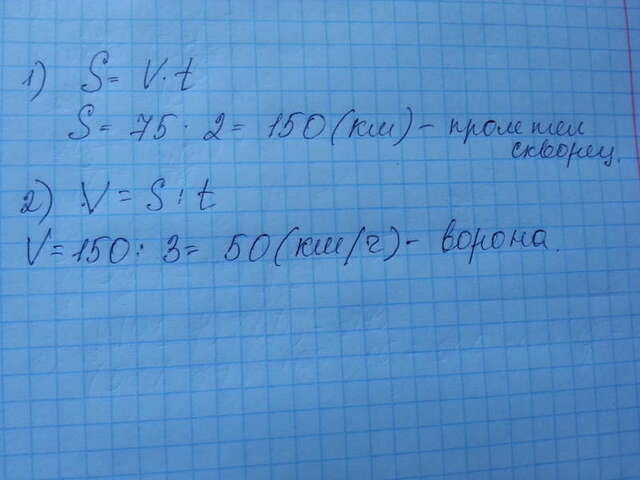 1) S = V · t
S = 75 · 2 = 150 (км) - пролетел
скворец.
2) V = S : t
V = 150 : 3 = 50 (км/ч) - ворона.